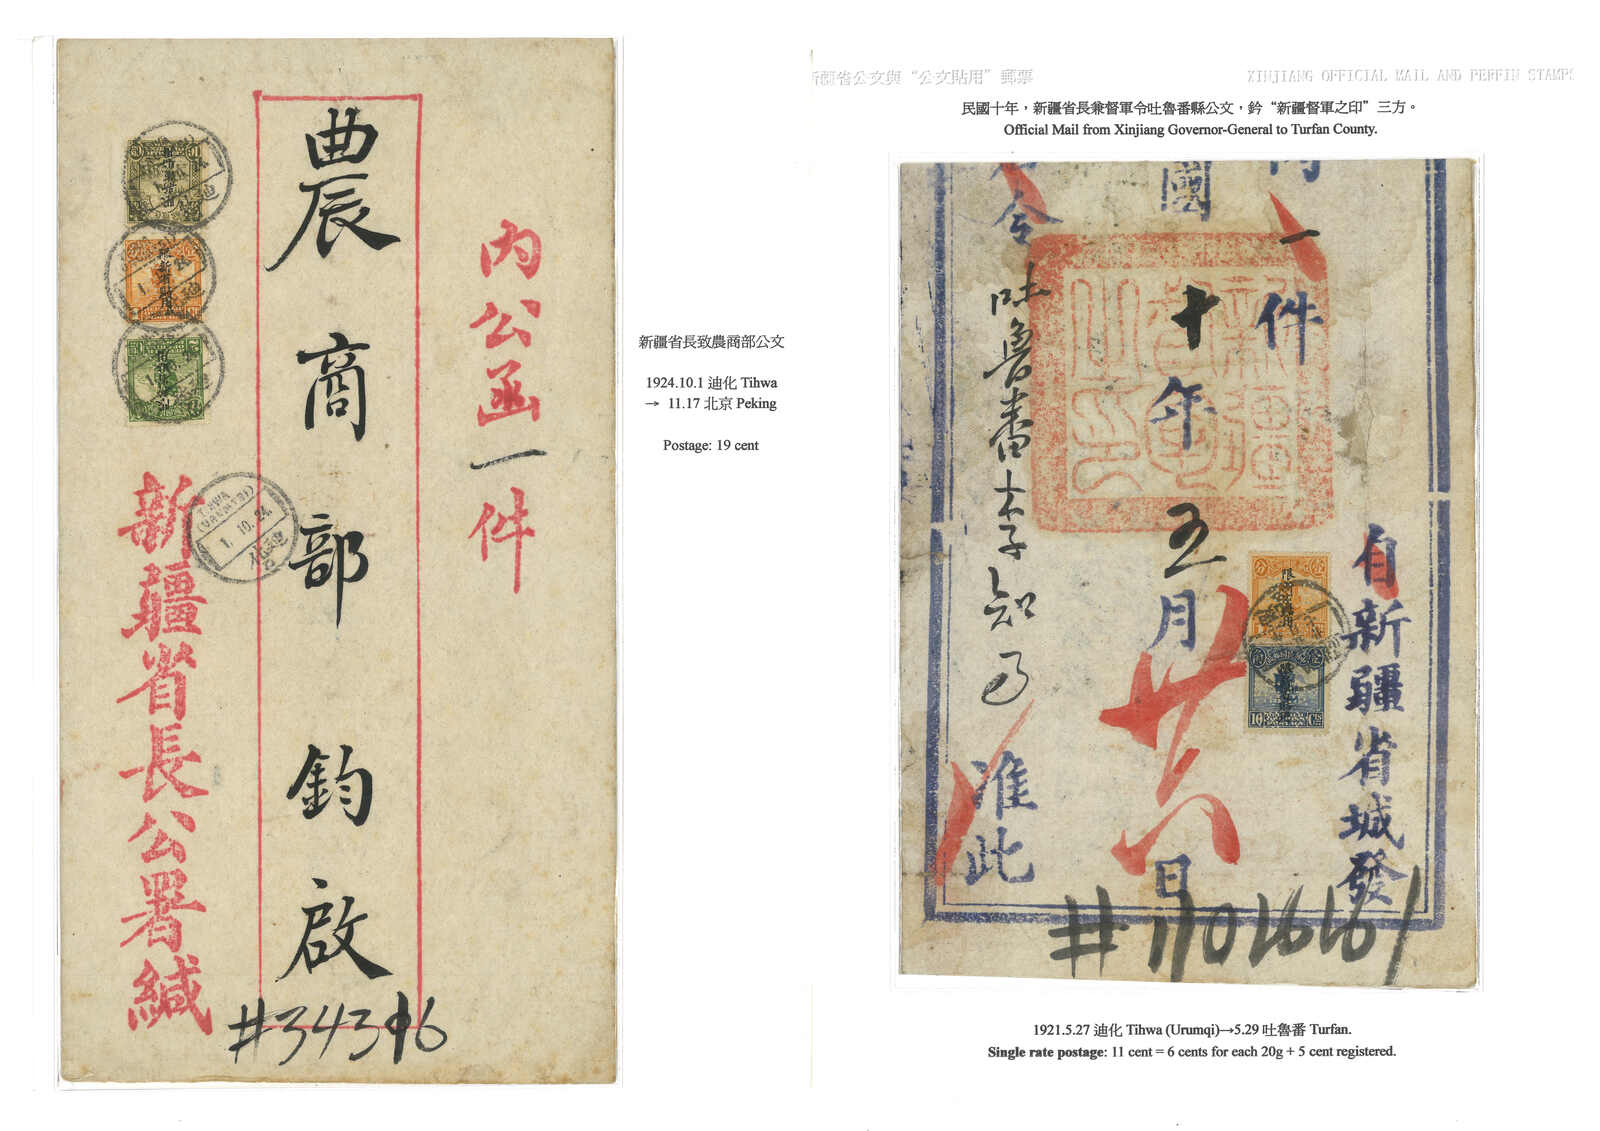 內公函一件
農商部鈞啟
新疆省長公署緘
TIHWA
(URUMTSI)
1.10.24.
#34396
新疆省長致農商部公文
1924.10.1 迪化 Tihwa
→ 11.17 北京 Peking
Postage: 19 cent
新疆省公文與“公文貼用”郵票
XINJIANG OFFICIAL MAIL AND PERFIN STAMPS
民國十年，新疆省長兼督軍令吐魯番縣公文，鈐“新疆督軍之印”三方。
Official Mail from Xinjiang Governor-General to Turfan County.
自新疆省城發
內一件
國十年五月廿六日
令吐魯番李知事准此
新疆督軍之印
10
#1701661
1921.5.27 迪化 Tihwa (Urumqi)→5.29 吐魯番 Turfan.
Single rate postage: 11 cent = 6 cents for each 20g + 5 cent registered.